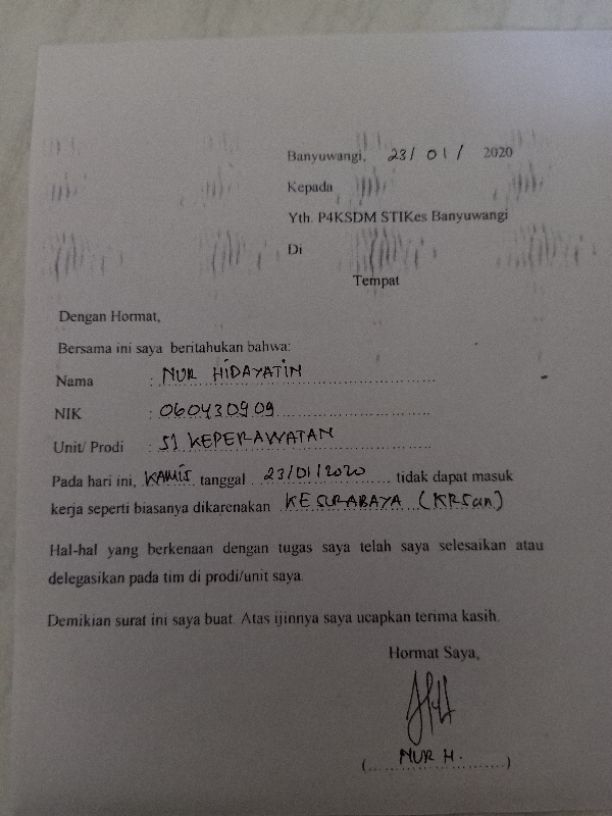 Banyuwangi, 23/ 01 / 2020
Kepada
Yth. P4KSDM STIKes Banyuwangi
Di
Tempat
Dengan Hormat,
Bersama ini saya beritahukan bahwa:
Nama : NUR HIDAYATIN
NIK : 060430909
Unit/ Prodi : S1 KEPERAWATAN
Pada hari ini, KAMIS tanggal 23/01/2020 tidak dapat masuk
kerja seperti biasanya dikarenakan KE SURABAYA (KRSan)
Hal-hal yang berkenaan dengan tugas saya telah saya selesaikan atau
delegasikan pada tim di prodi/unit saya.
Demikian surat ini saya buat. Atas ijinnya saya ucapkan terima kasih.
Hormat Saya,
(NUR H.)